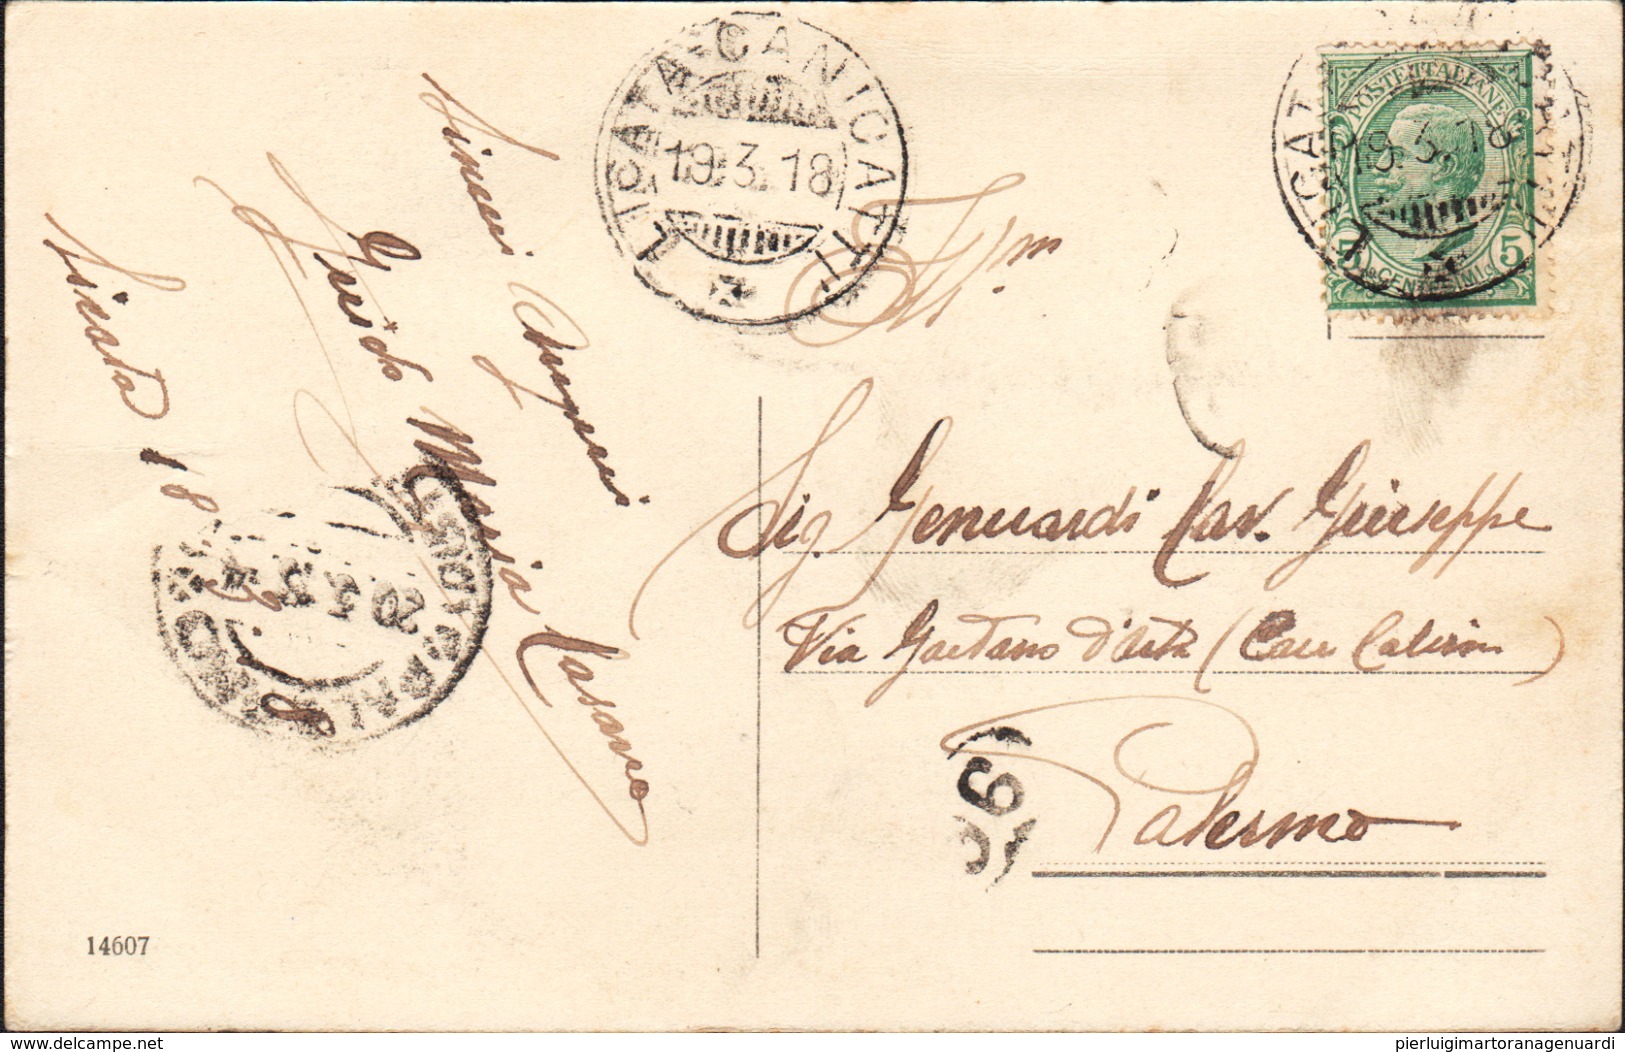 Licata 18 . 3 . 8
Sinceri Auguri
Guido Maria Casano
LICATA - CANICATTI
19.3.18
LICATA - CANICATTI
19.3.18
POSTE ITALIANE
5 CENTESIMI 5
Ill.m
Sig. Genuardi Cav. Giuseppe
Via Gaetano d'Arta (Case
Palermo
20.3.
96
14607
delcampe.net
pierluigimartoranagenuardi